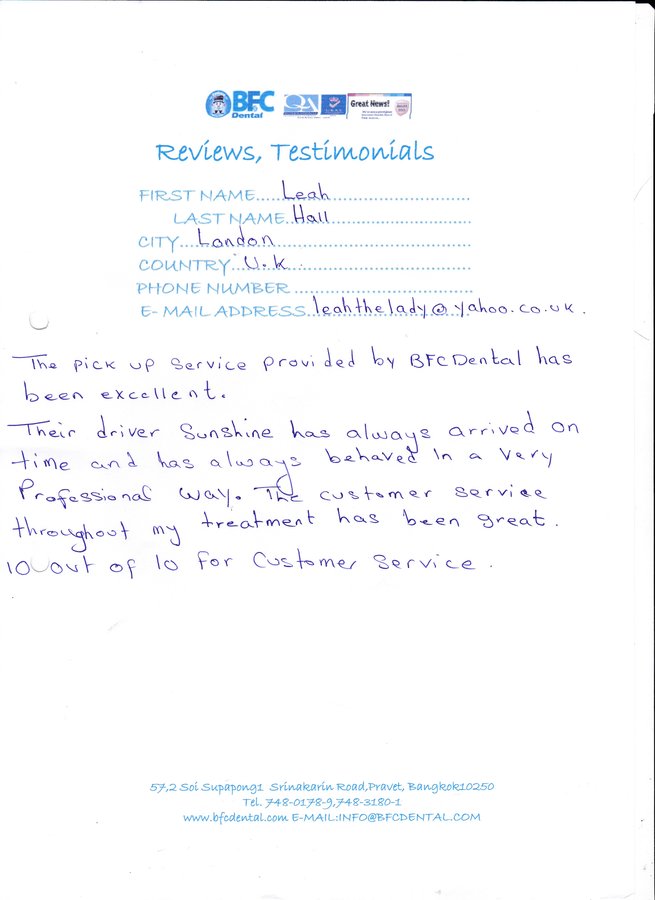 BFC
Dental
QA
Great News!
Reviews, Testimonials
FIRST NAME.....Leah...............................
LAST NAME..Hall...............................
CITY....London...........................................
COUNTRY U.K.........................................
PHONE NUMBER ........................................
E-MAIL ADDRESS.leahthelady@yahoo.co.uk.
The pick up service provided by BFC Dental has
been excellent.
Their driver Sunshine has always arrived on
time and has always behaved in a very
Professional way. The customer service
throughout my treatment has been great.
10 out of 10 for customer service.
57,2 Soi Supapong1 Srinakarin Road,Pravet, Bangkok10250
Tel. 748-0178-9,748-3180-1
www.bfcdental.com E-MAIL:INFO@BFCDENTAL.COM